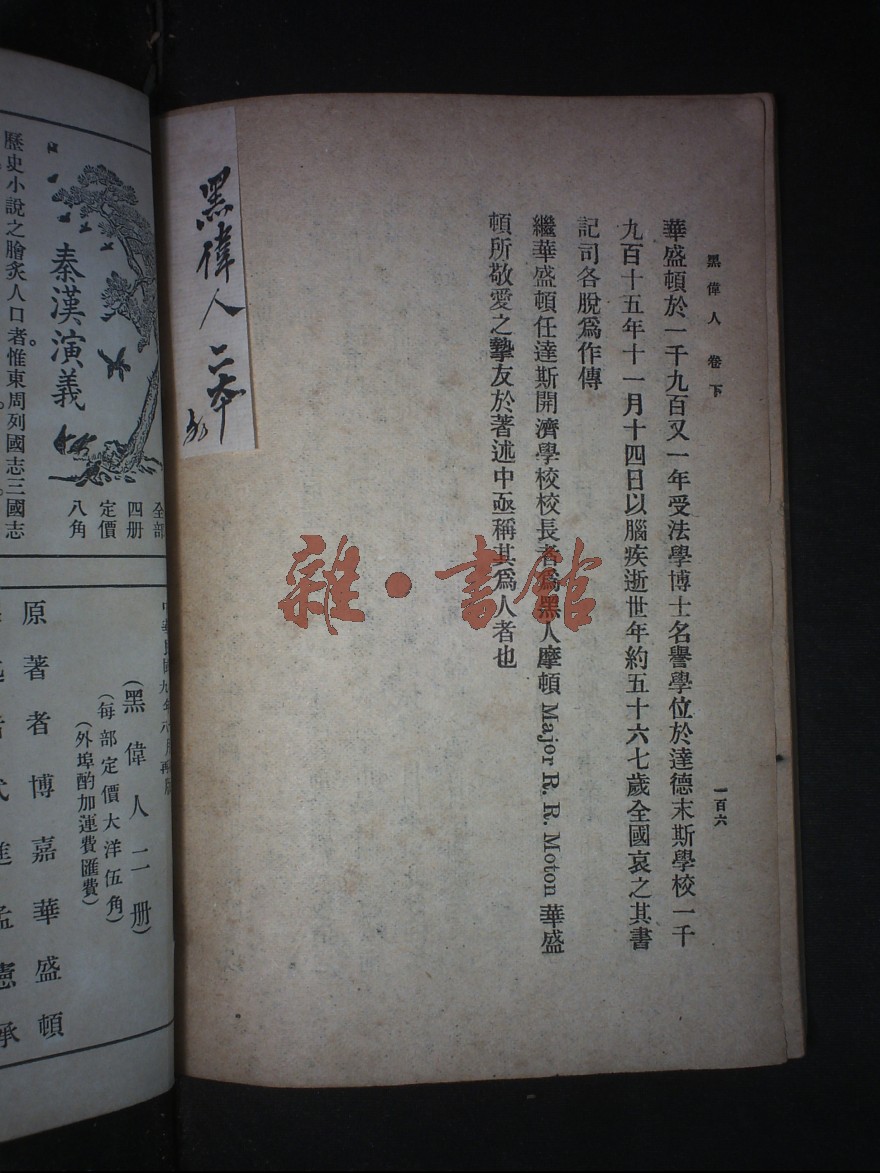 黑偉人 卷下
一百六
華盛頓於一千九百又一年受法學博士名譽學位於達德末斯學校一千
九百十五年十一月十四日以腦疾逝世年約五十六七歲全國哀之其書
記司各脫爲作傳
繼華盛頓任達斯開濟學校校長者爲黑人摩頓 Major R. R. Moton 華盛
頓所敬愛之摯友於著述中亟稱其爲人者也
黑偉人 二本
雜·書館
秦漢演義
全部
四册
定價
八角
歷史小說之膾炙人口者惟東周列國志三國志
中華民國九年
再版
(黑偉人二册)
(每部定價大洋伍角)
(外埠酌加運費匯費)
原著者 博嘉華盛頓
孟憲承